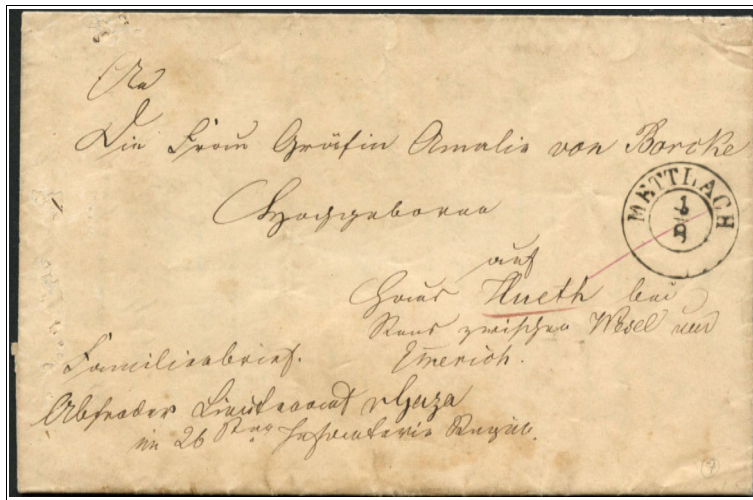 An
Die Frau Gräfin Amalie von Borcke
Hochgeboren
METTLACH
1/8
auf
Haus Hueth bei
Rees zwischen Wesel und
Emerich.
Familienbrief.
Absender Lieutenant v Gaza
im 26 Sten Infanterie Regim.